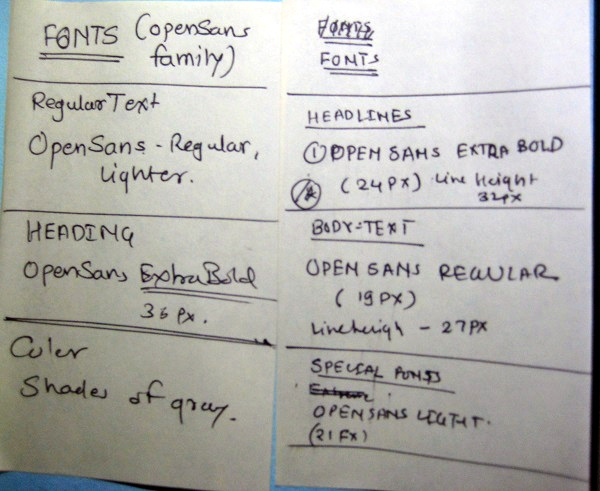 FONTS (OpenSans
family)
Regular Text
OpenSans - Regular,
Lighter.
HEADING
OpenSans ExtraBold
36 px.
Color
Shades of gray.
FONTS
FONTS
HEADLINES
① OPEN SANS EXTRA BOLD
(24PX) Line Height
32px
BODY-TEXT
OPEN SANS REGULAR
(19 PX)
Lineheigh - 27PX
SPECIAL FONTS
OPENSANS LIGHT.
(21 PX)